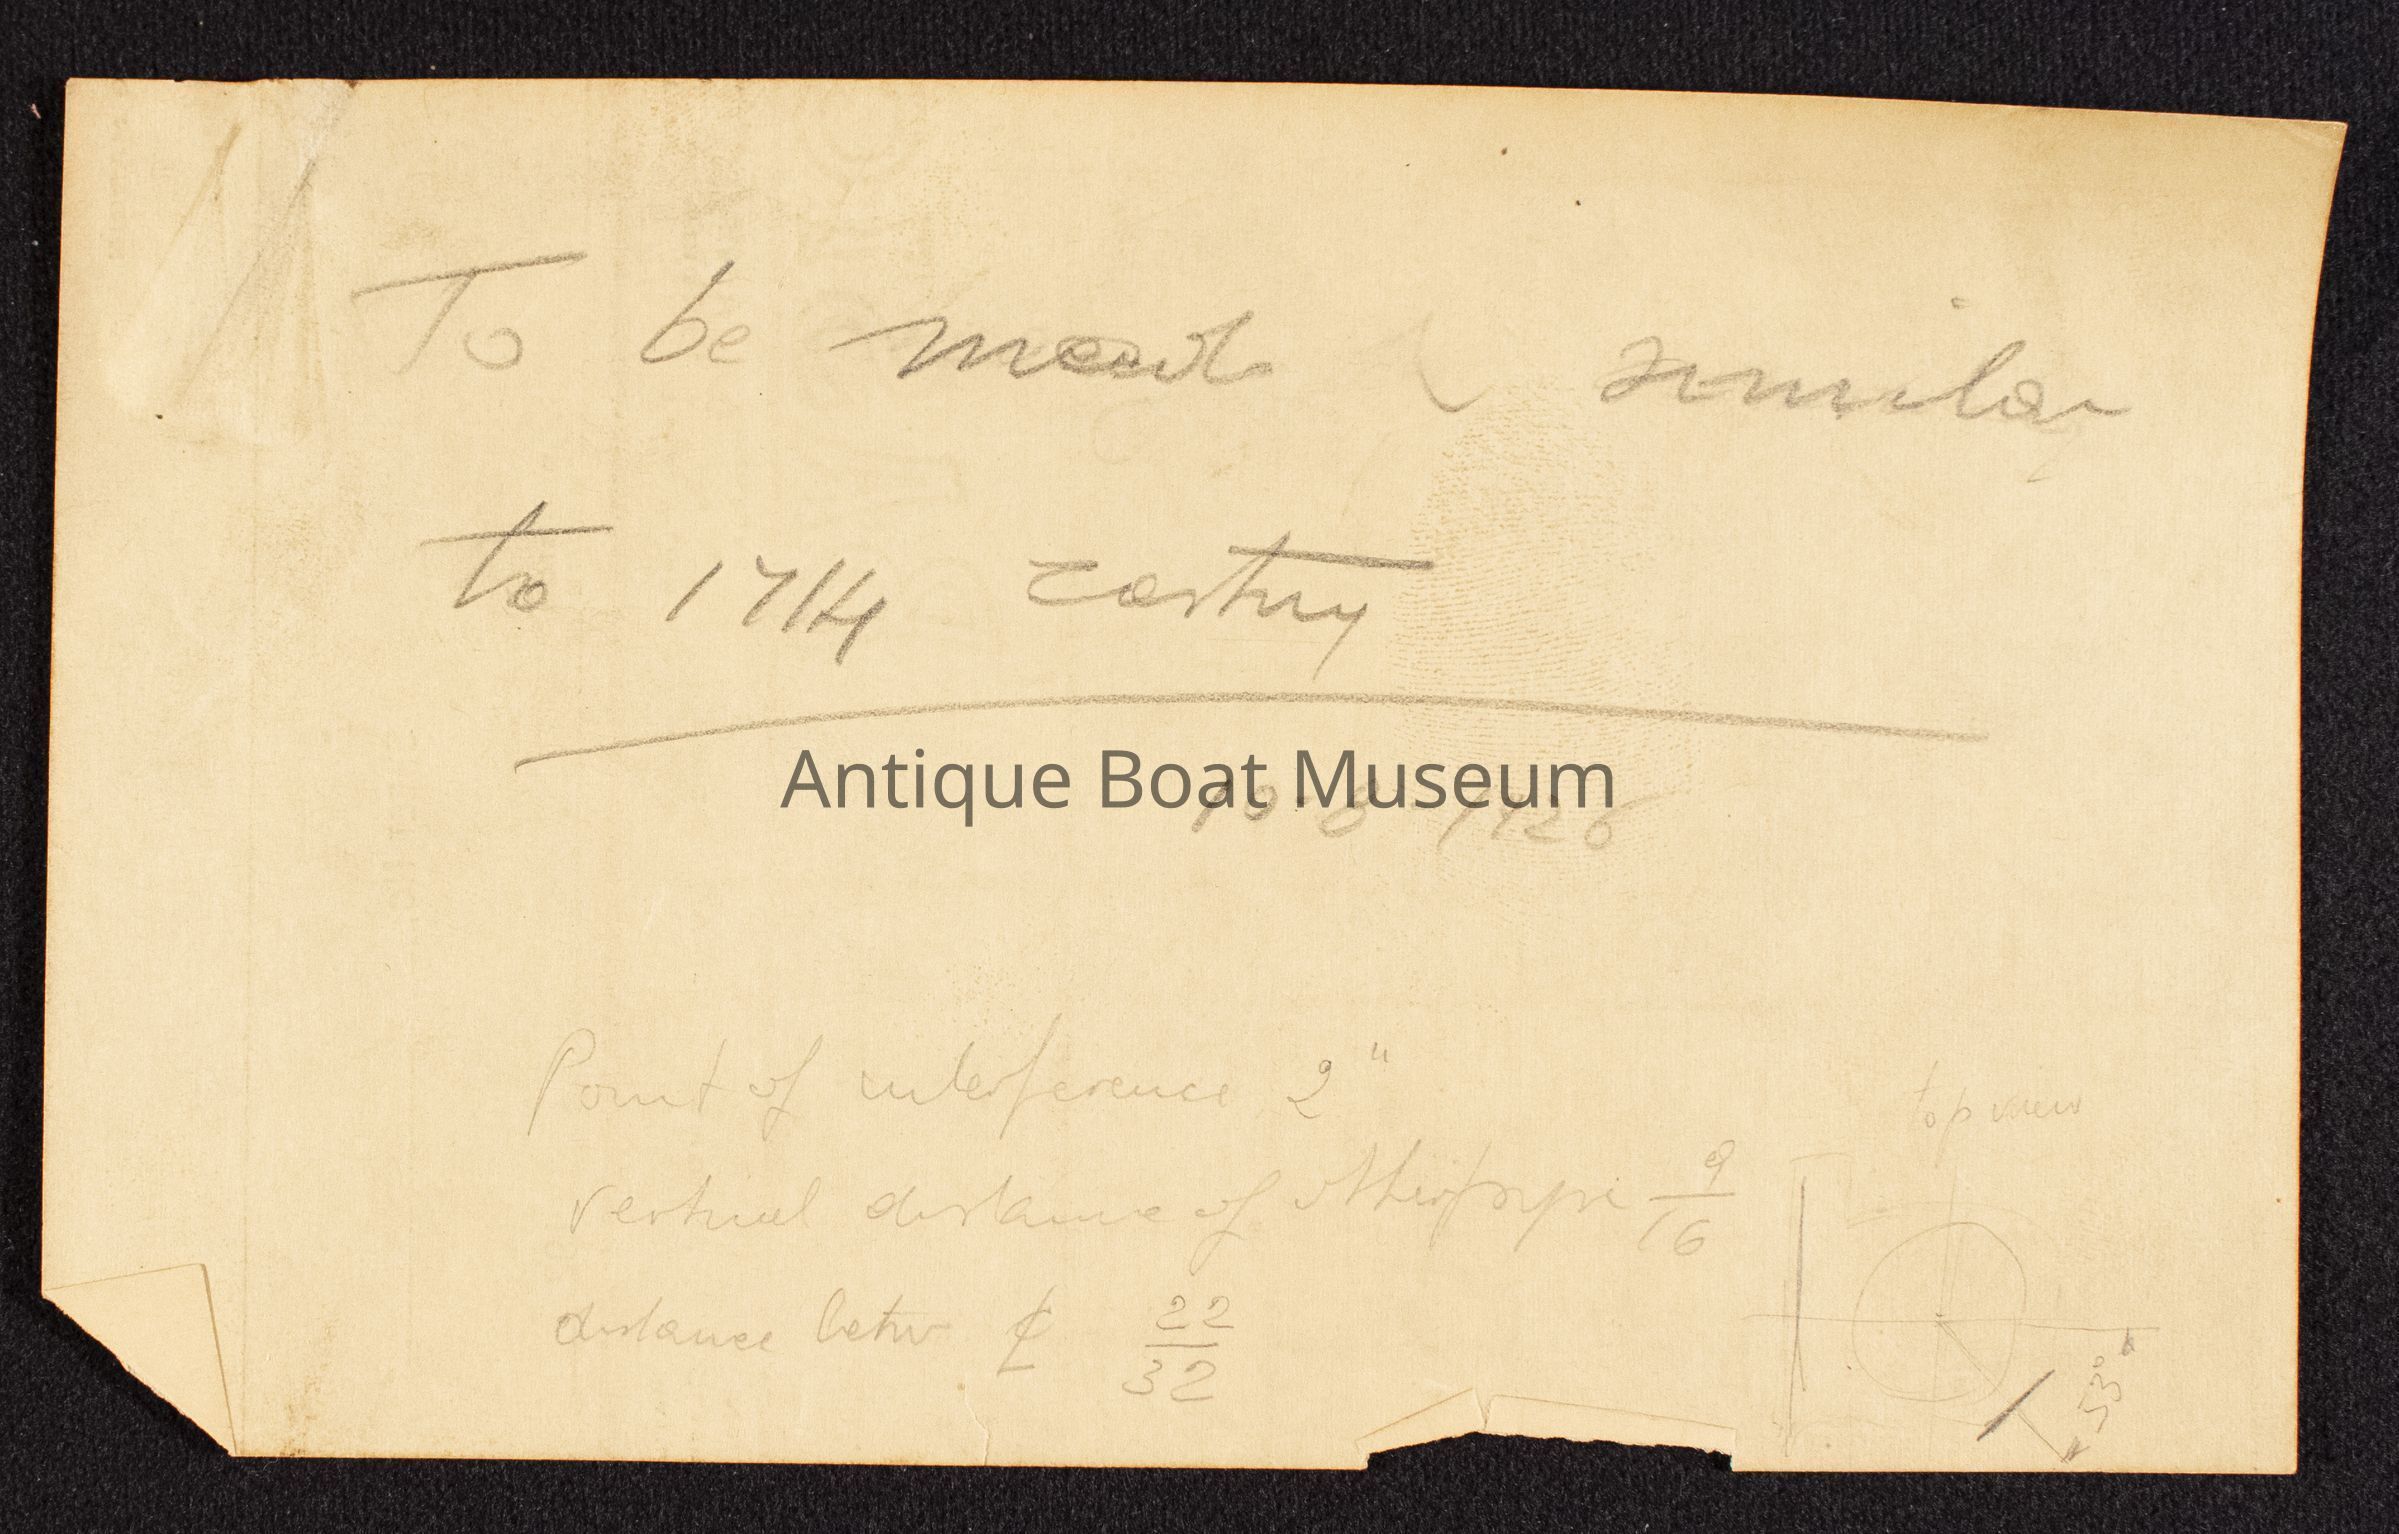 To be made similar
to 1714 casting
Antique Boat Museum
10-8-1926
Point of interference 2"
vertical distance of other pipe 9/16
distance betw ℄ 22/32
top view
53°